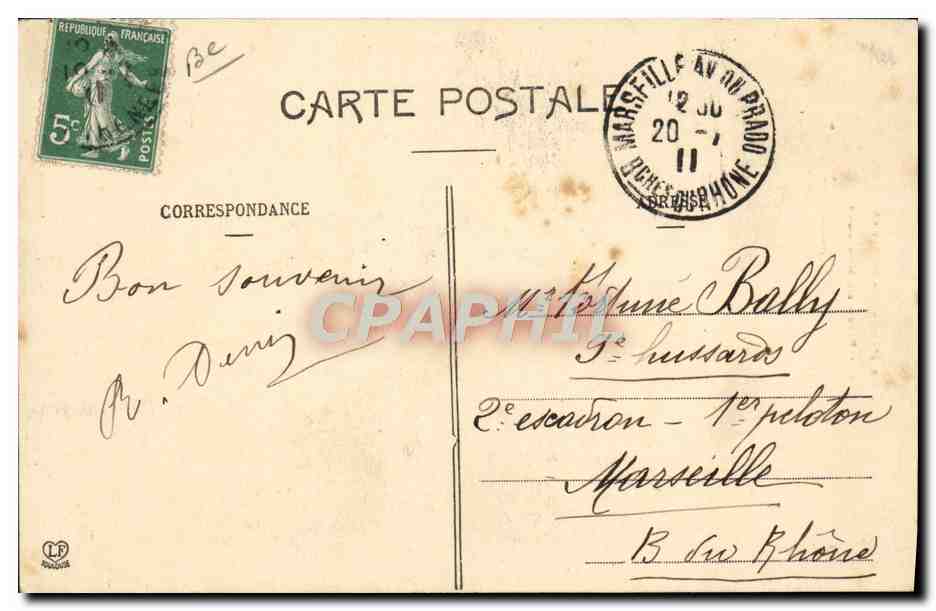 REPUBLIQUE FRANÇAISE
5c
POSTES
Be
CARTE POSTALE
MARSEILLE AV. DU PRADO
12 30
20 -7
11
BCHES DU RHONE
CORRESPONDANCE
ADRESSE
Bon souvenir
R. Denis
Mr Fortuné Bally
9e hussards
2e escadron - 1er peloton
Marseille
B du Rhône
CPAPHIL
LF
TOULOUSE